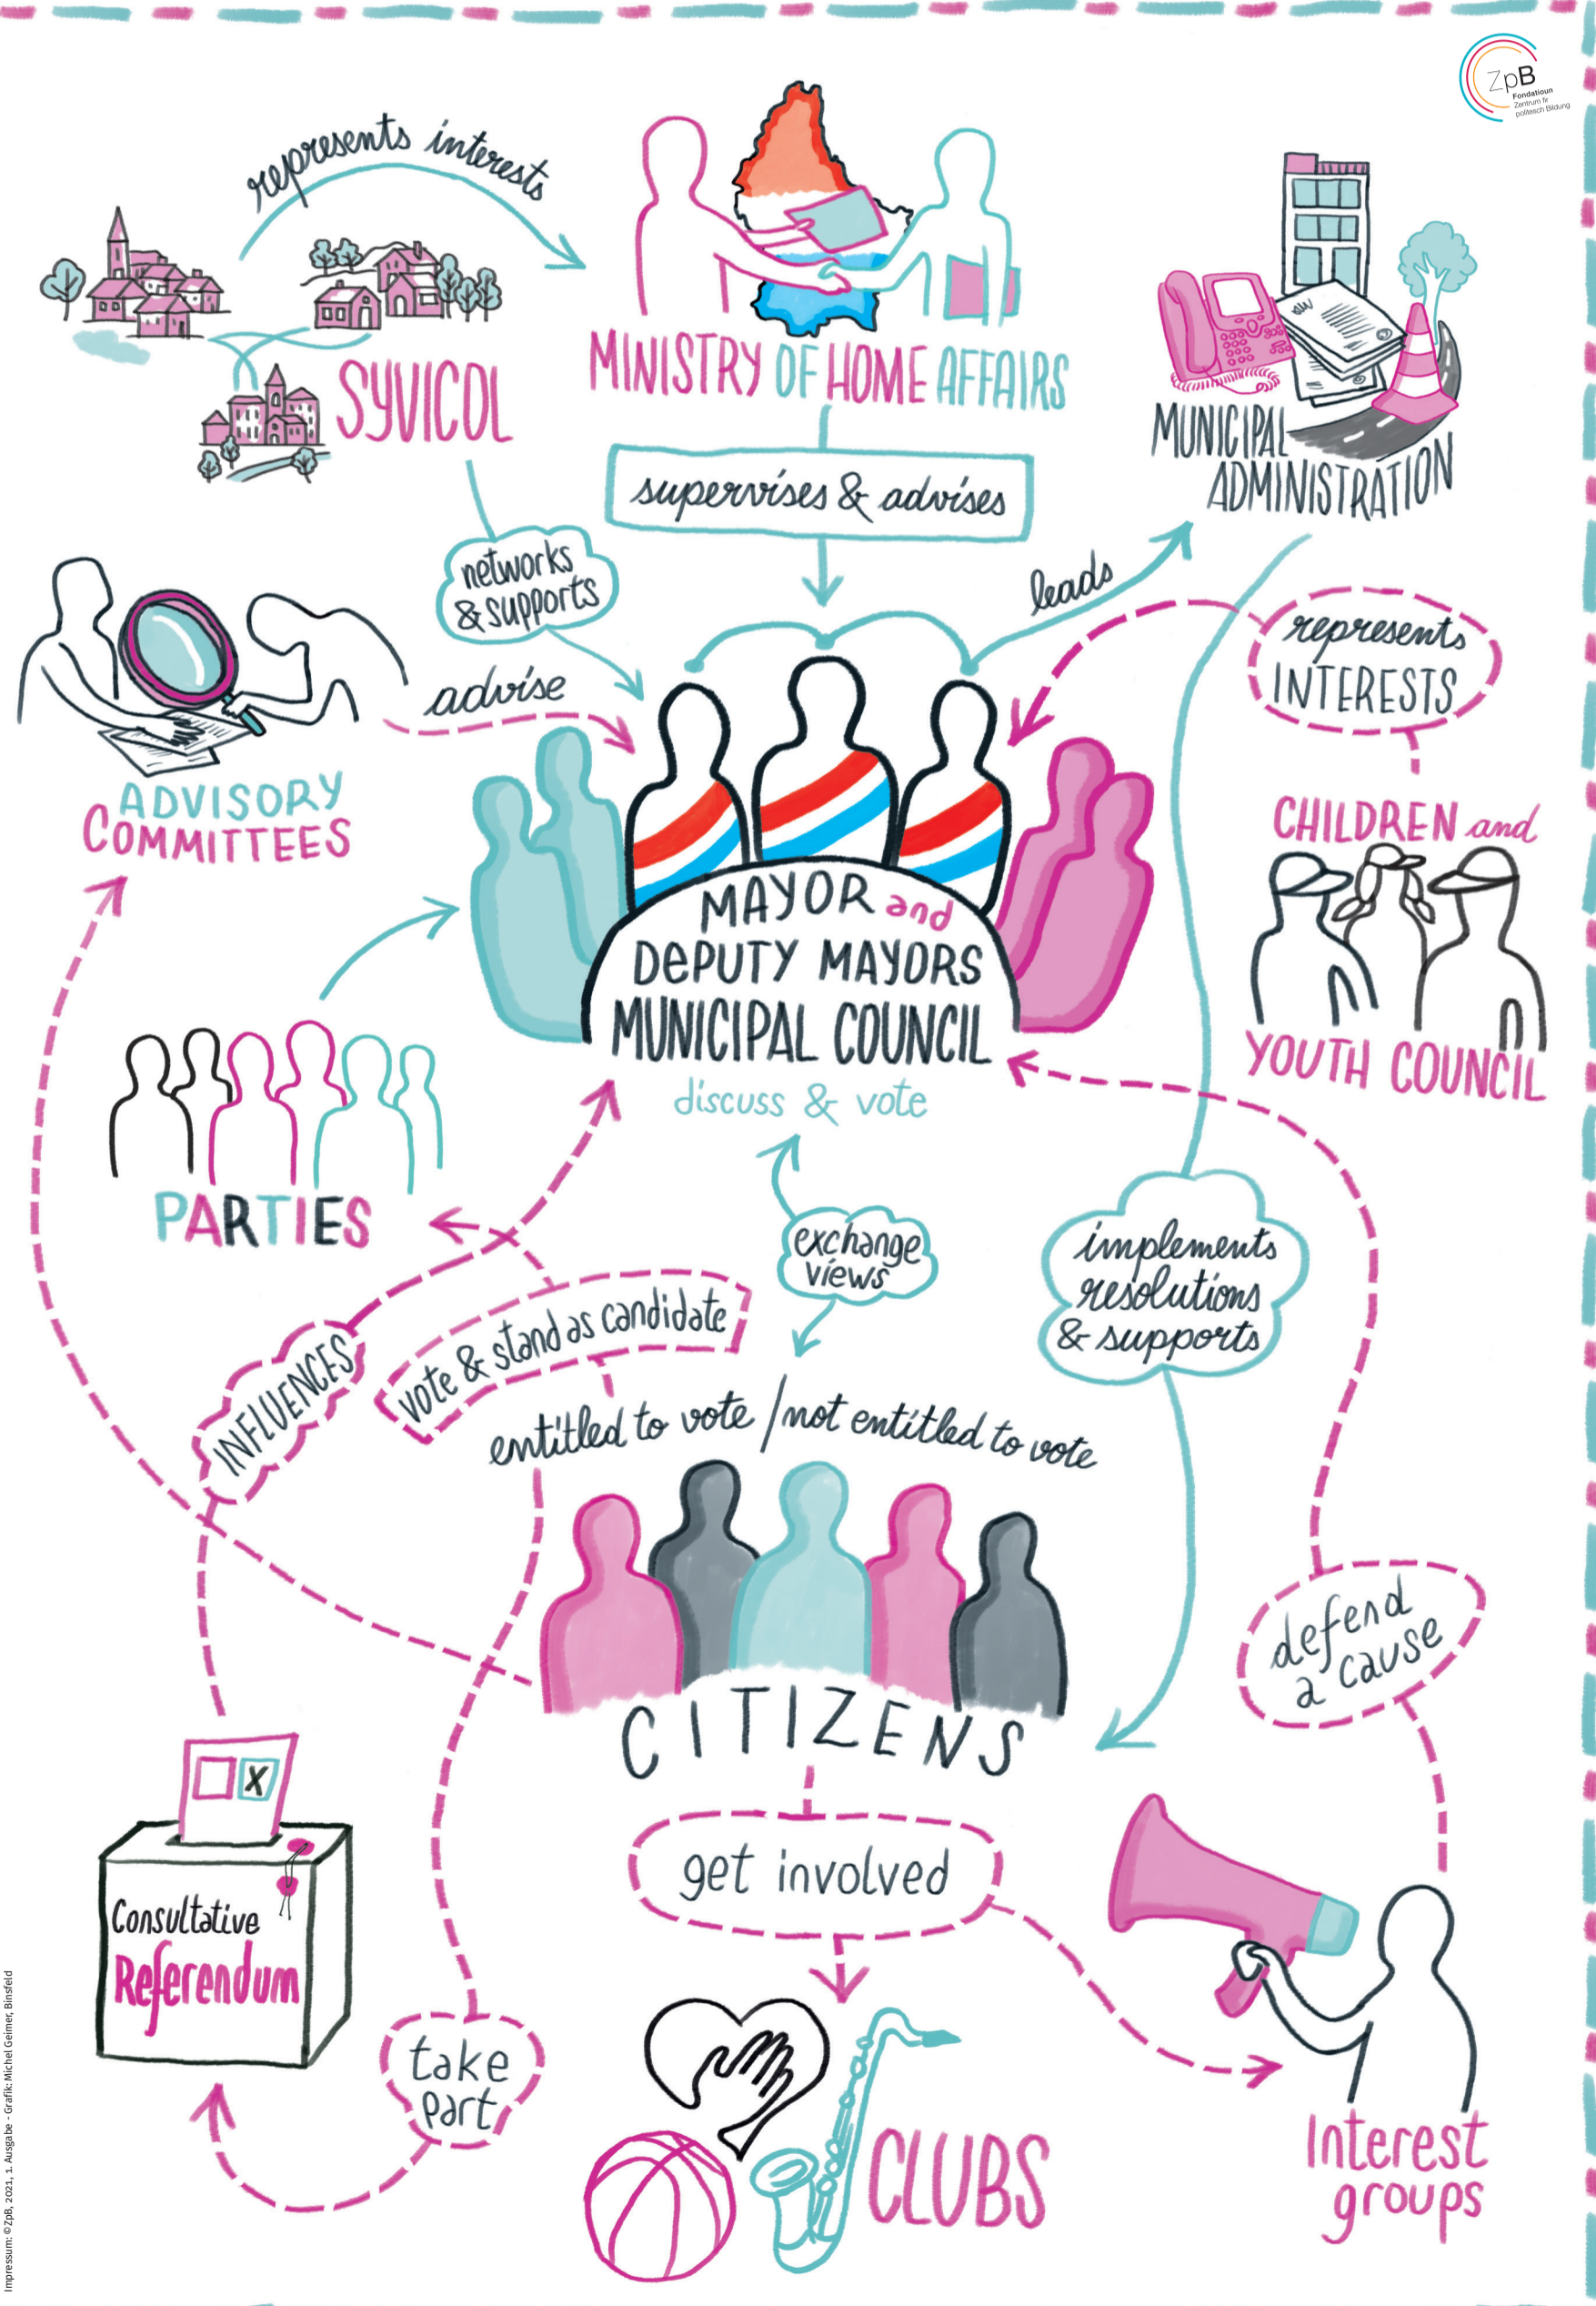 ZpB
Fondatioun
Zentrum fir
politesch Bildung
represents interests
SYVICOL
MINISTRY OF HOME AFFAIRS
MUNICIPAL
ADMINISTRATION
supervises & advises
networks
& supports
leads
represents
INTERESTS
advise
ADVISORY
COMMITTEES
CHILDREN and
YOUTH COUNCIL
MAYOR and
DEPUTY MAYORS
MUNICIPAL COUNCIL
discuss & vote
PARTIES
exchange
views
implements
resolutions
& supports
INFLUENCES
vote & stand as candidate
entitled to vote / not entitled to vote
CITIZENS
defend
a cause
get involved
X
Consultative
Referendum
take
part
CLUBS
Interest
groups
Impressum: © ZpB, 2021, 1. Ausgabe - Grafik: Michel Geimer, Binsfeld